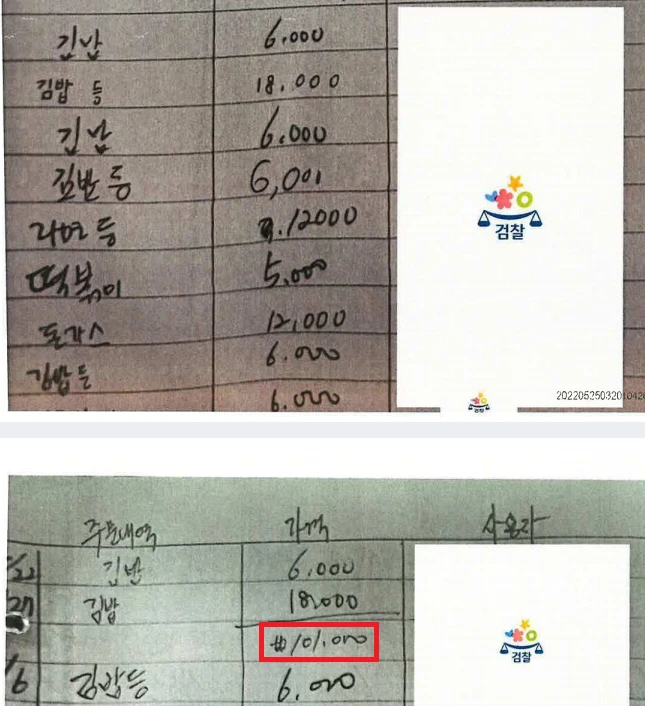 김밥 6.000
김밥 등 18.000
김밥 6.000
김밥등 6,000
라면 등 12000
떡볶이 5,000
돈가스 12,000
김밥등 6.000
6.000
검찰
검찰
주문내역 가격 사용자
/22 김밥 6.000
27 김밥 18.000
#101.000
/6 김밥등 6.000
검찰